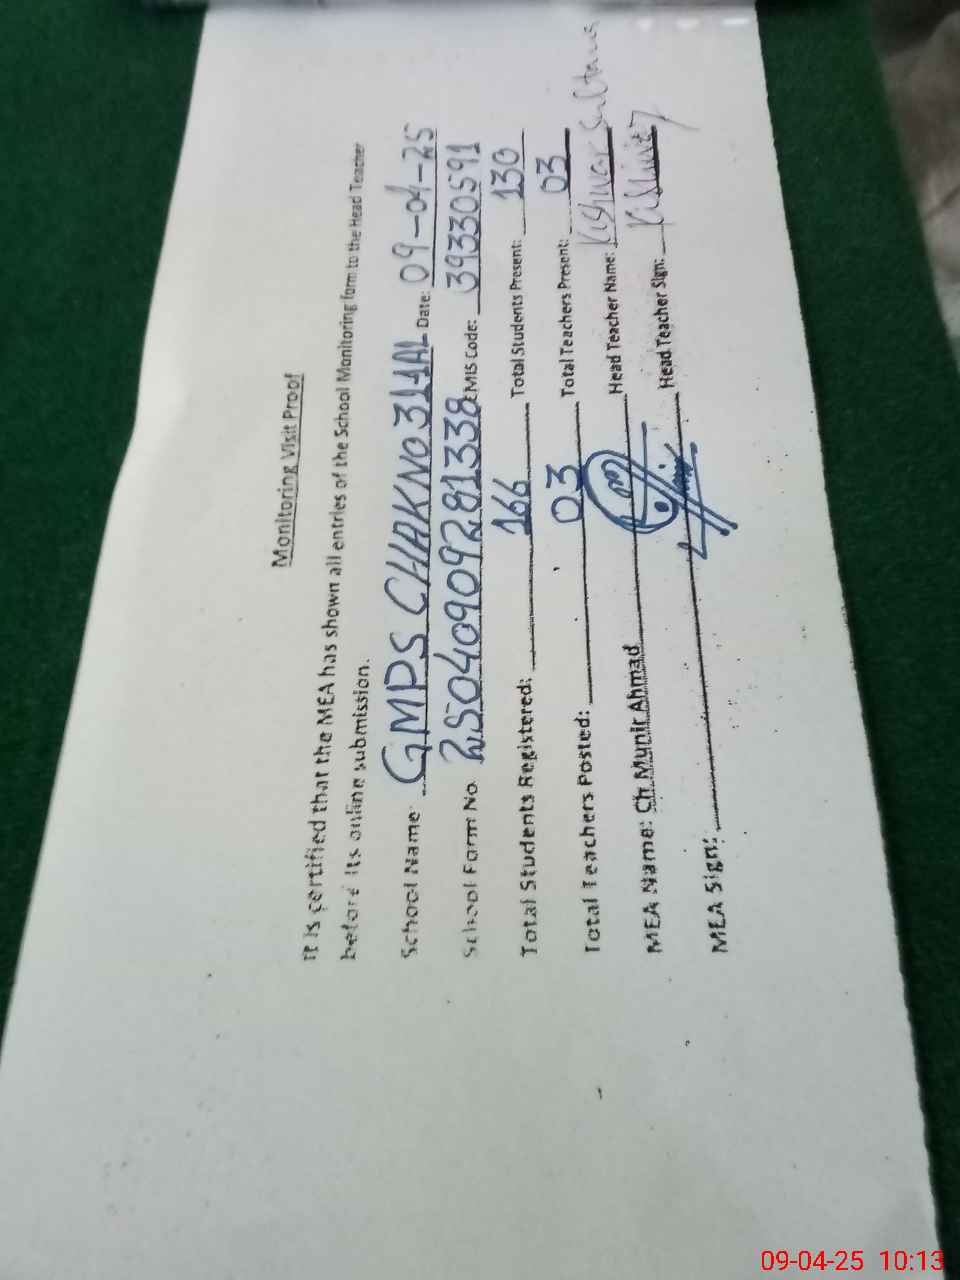 Monitoring Visit Proof
It is certified that the MEA has shown all entries of the School Monitoring form to the Head Teacher
before its online submission.
School Name GMPS CHAKNO311AL Date: 09-04-25
School Form No 25040909281338 EMIS Code: 39330591
Total Students Registered: 166 Total Students Present: 130
Total Teachers Posted: 03 Total Teachers Present: 03
MEA Name: Ch Munir Ahmad Head Teacher Name: Kishwar Sultana
MEA Sign: Head Teacher Sign:
09-04-25 10:13